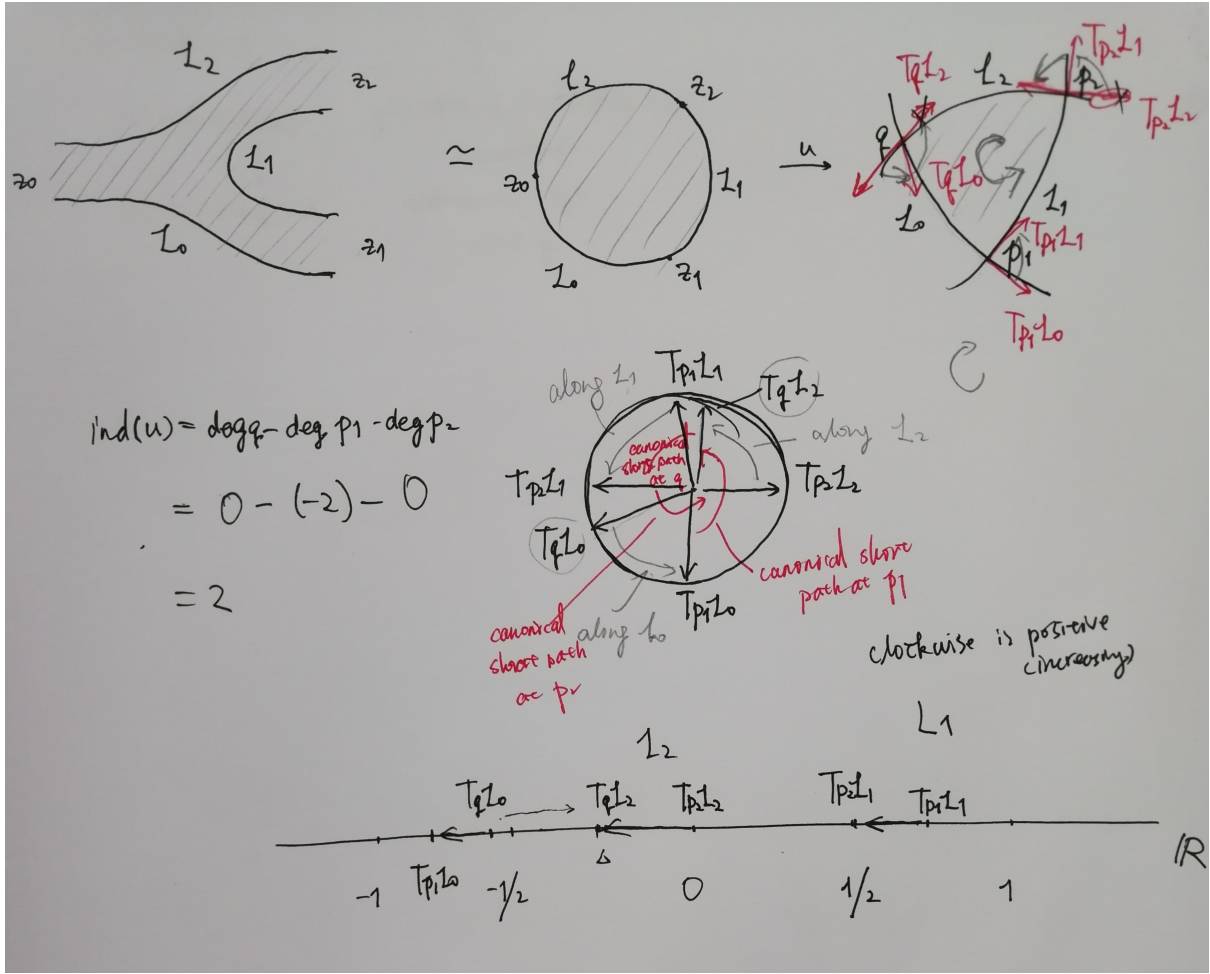 L₂
z₂
L₁
z₀
L₀
z₁
≃
L₂
z₂
z₀
L₁
L₀
z₁
u
TqL₂
L₂
Tp₂L₁
p₂
Tp₂L₂
q
TqL₀
L₀
L₁
Tp₁L₁
p₁
Tp₁L₀
ind(u) = deg q - deg p₁ - deg p₂
= 0 - (-2) - 0
= 2
along L₁
Tp₁L₁
TqL₂
along L₂
canonical
short path
at q
Tp₂L₁
Tp₂L₂
TqL₀
Tp₁L₀
canonical short
path at p₁
canonical
short path
at p₂
along L₀
clockwise is positive
(increasing)
L₂
L₁
TqL₀
TqL₂
Tp₂L₂
Tp₂L₁
Tp₁L₁
Tp₁L₀
-1
-1/2
0
1/2
1
ℝ